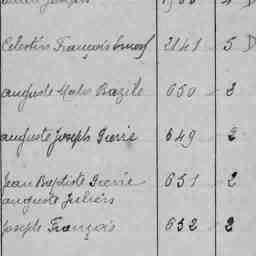 Celestin François Ernest 2141 5 D
auguste Malo Bazile 650 2
auguste Joseph Pierre 649 2
Jean Baptiste Pierre 651 2
auguste Juliers
Joseph François 652 2